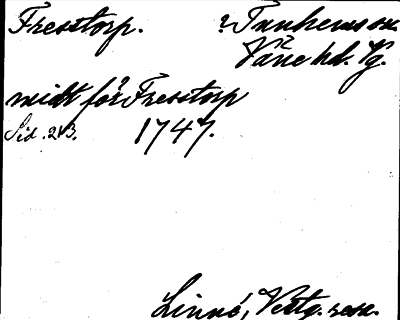 Fresstorp. ? Tunhems sn.
Väne hd. Vg.
midt för Fresstorp
Sid. 213. 1747.
Linné, Vestg. resa.